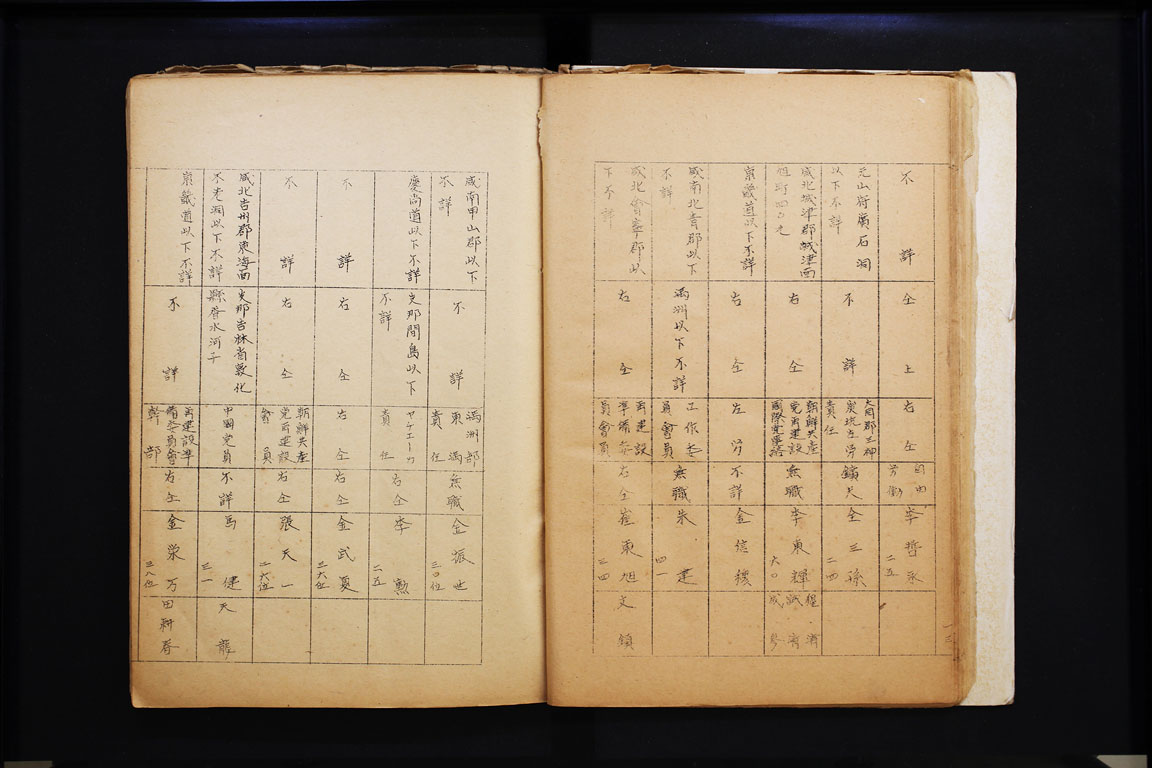 不詳
仝上
右仝
自由
労働
李哲承
二五
元山府廣石洞
以下不詳
不詳
大同郡三神
炭坑主労
責任
鎖夫
仝三孫
二四
咸北城津郡城津面
旭町四〇七
右仝
朝鮮共産
党再建設
國際党連絡
無職
李東輝
六〇
京畿道以下不詳
右仝
左労
不詳
金信穰
咸南北青郡以下
不詳
満洲以下不詳
工作委
員會員
無職
朱建
四一
咸北會寧郡以
下不詳
右仝
再建設
準備委
員會員
右仝
崔東旭
三四
文鎖
咸南甲山郡以下
不詳
不詳
満洲部
東満
責任
無職
金振世
三〇位
慶尚道以下不詳
支那間島以下
不詳
ヤチエーカ
責任
右仝
李勲
二五
不詳
右仝
右仝
右仝
金武夏
三六位
不詳
右仝
朝鮮共産
党再建設
委員
右仝
張天一
二六位
咸北吉州郡東海面
不老洞以下不詳
支那吉林省敦化
縣沓水河子
中國党員
不詳
馬健
三一
天龍
京畿道以下不詳
不詳
再建設準
備委員會
幹部
右仝
金榮万
三八位
田耕春